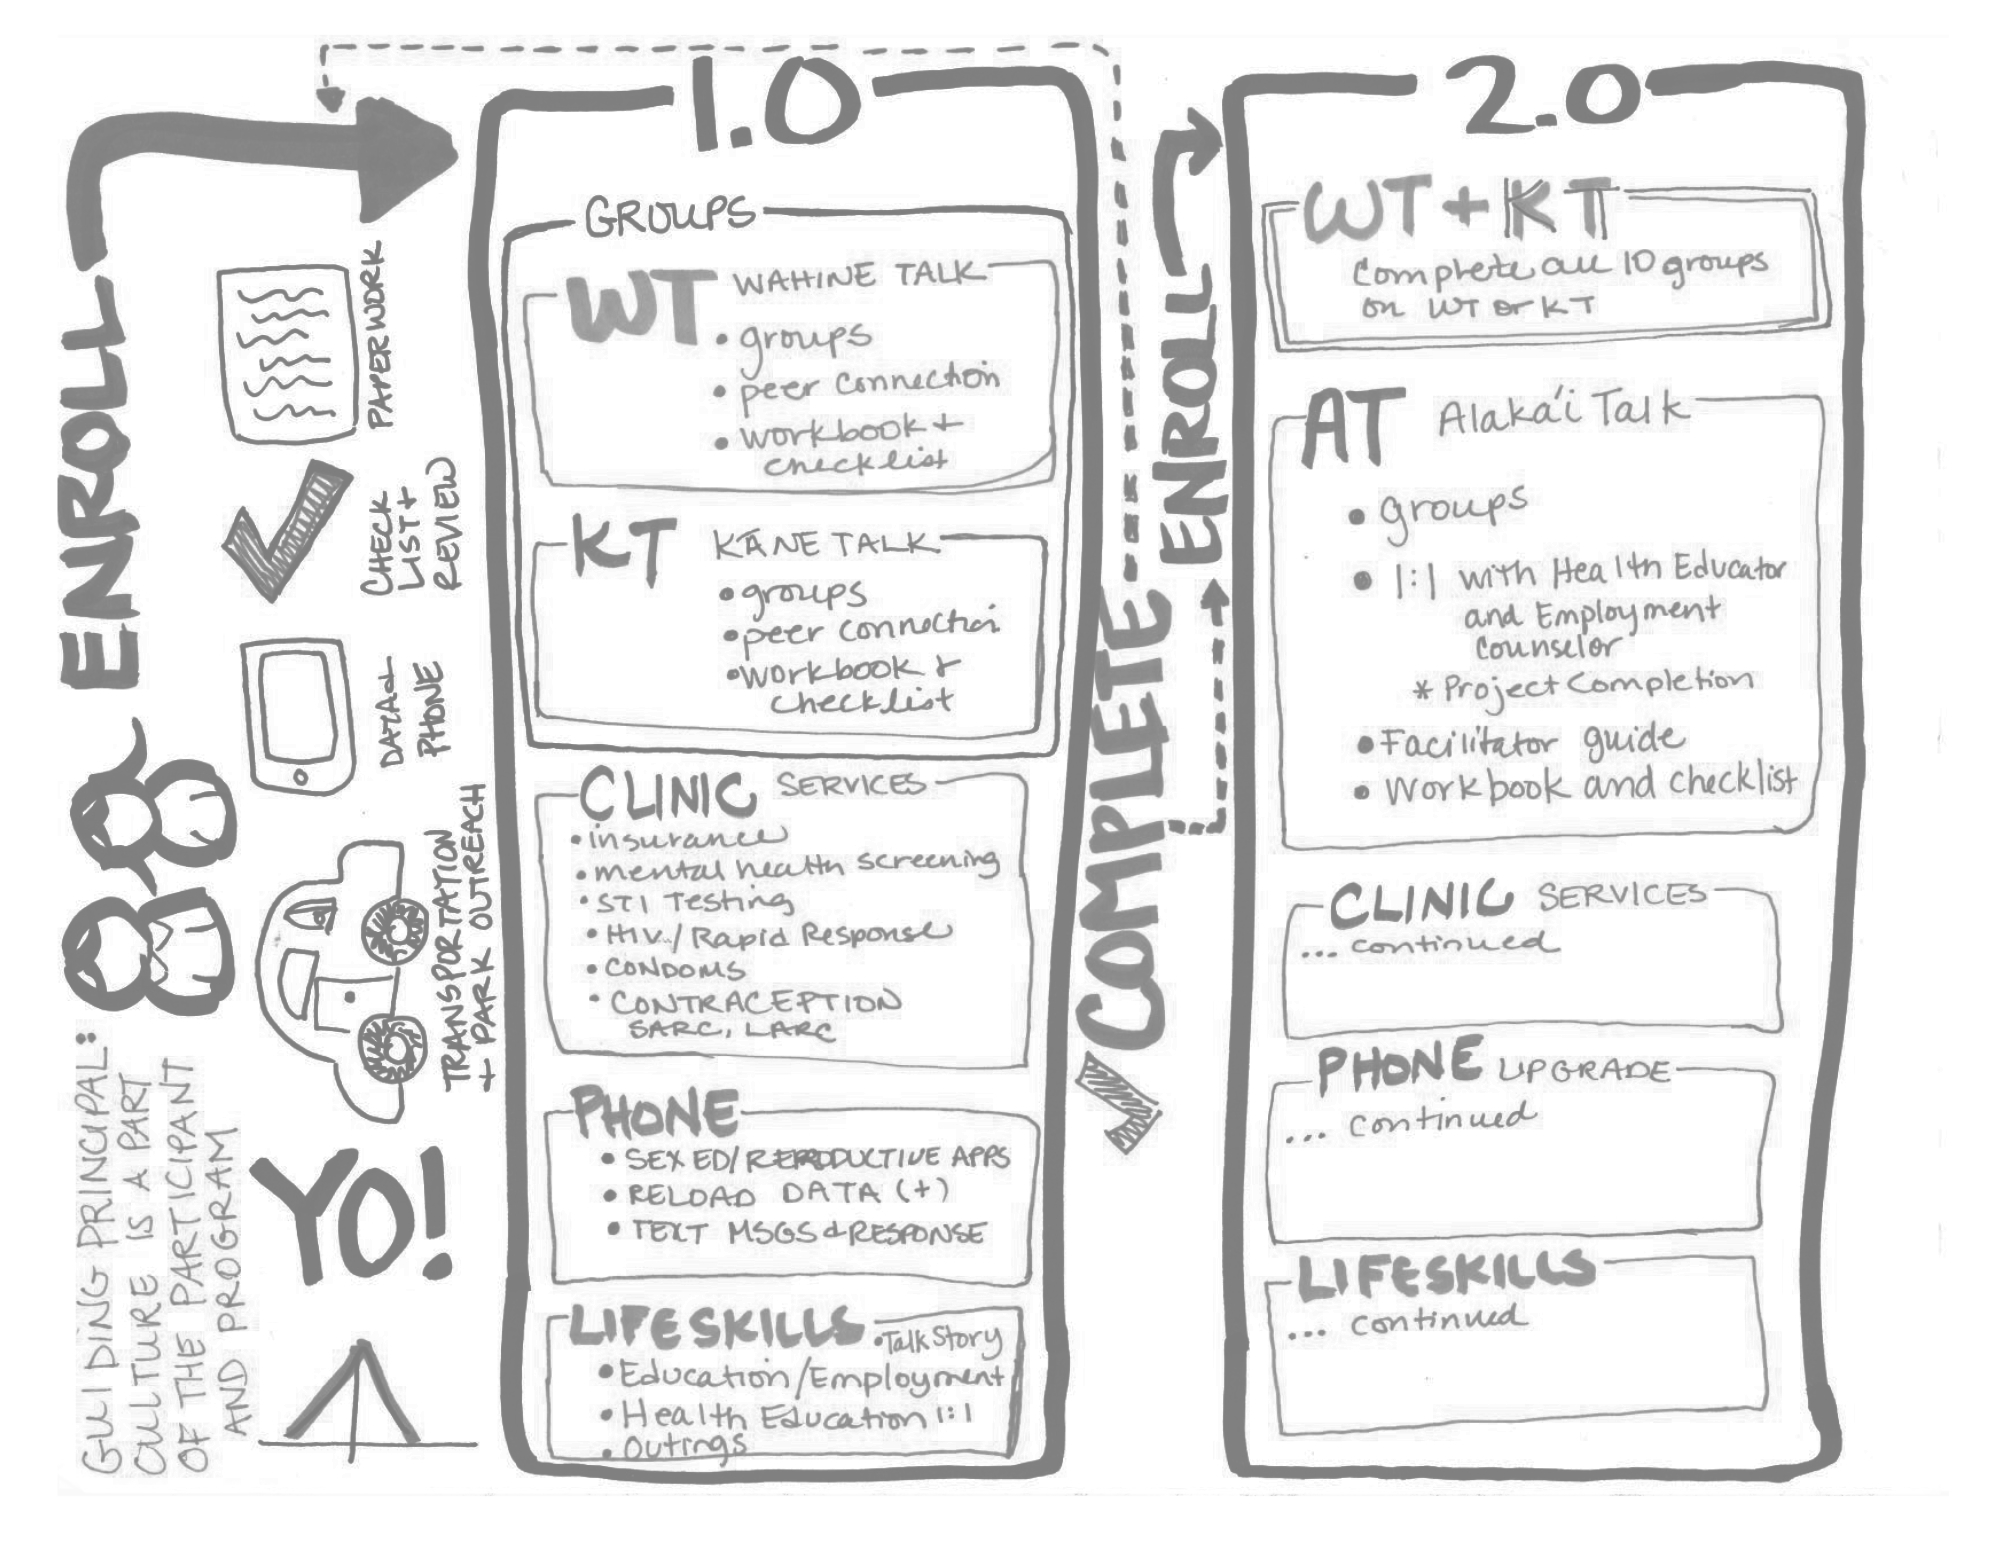 ENROLL
PAPERWORK
CHECK
LIST +
REVIEW
DATA &
PHONE
TRANSPORTATION
+ PARK OUTREACH
YO!
GUIDING PRINCIPAL:
CULTURE IS A PART
OF THE PARTICIPANT
AND PROGRAM
1.0
GROUPS
WT WAHINE TALK
• groups
• peer connection
• workbook +
checklist
KT KĀNE TALK
• groups
• peer connection
• workbook +
checklist
CLINIC SERVICES
• insurance
• mental health screening
• STI Testing
• HIV/Rapid Response
• CONDOMS
• CONTRACEPTION
SARC, LARC
PHONE
• SEX ED/REPRODUCTIVE APPS
• RELOAD DATA (+)
• TEXT MSGS & RESPONSE
LIFESKILLS • Talk Story
• Education/Employment
• Health Education 1:1
• Outings
COMPLETE
ENROLL
2.0
WT + KT
Complete all 10 groups
on WT or KT
AT Alaka'i Talk
• groups
• 1:1 with Health Educator
and Employment
Counselor
* Project Completion
• Facilitator guide
• Workbook and checklist
CLINIC SERVICES
... continued
PHONE UPGRADE
... continued
LIFESKILLS
... continued